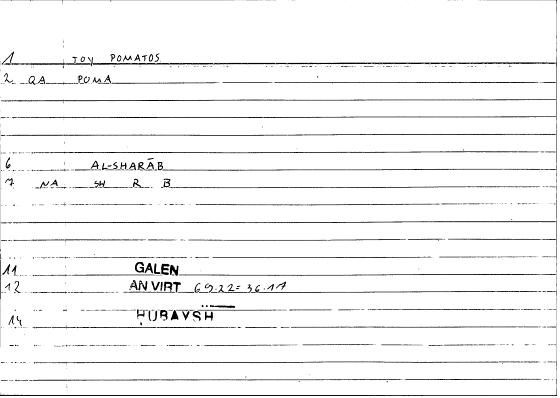 1 TOY POMATOS
2 QA POMA
6 AL-SHARĀB
7 NA SH R B
11 GALEN
12 AN VIRT 69.22=36.17
14 ḤUBAYSH